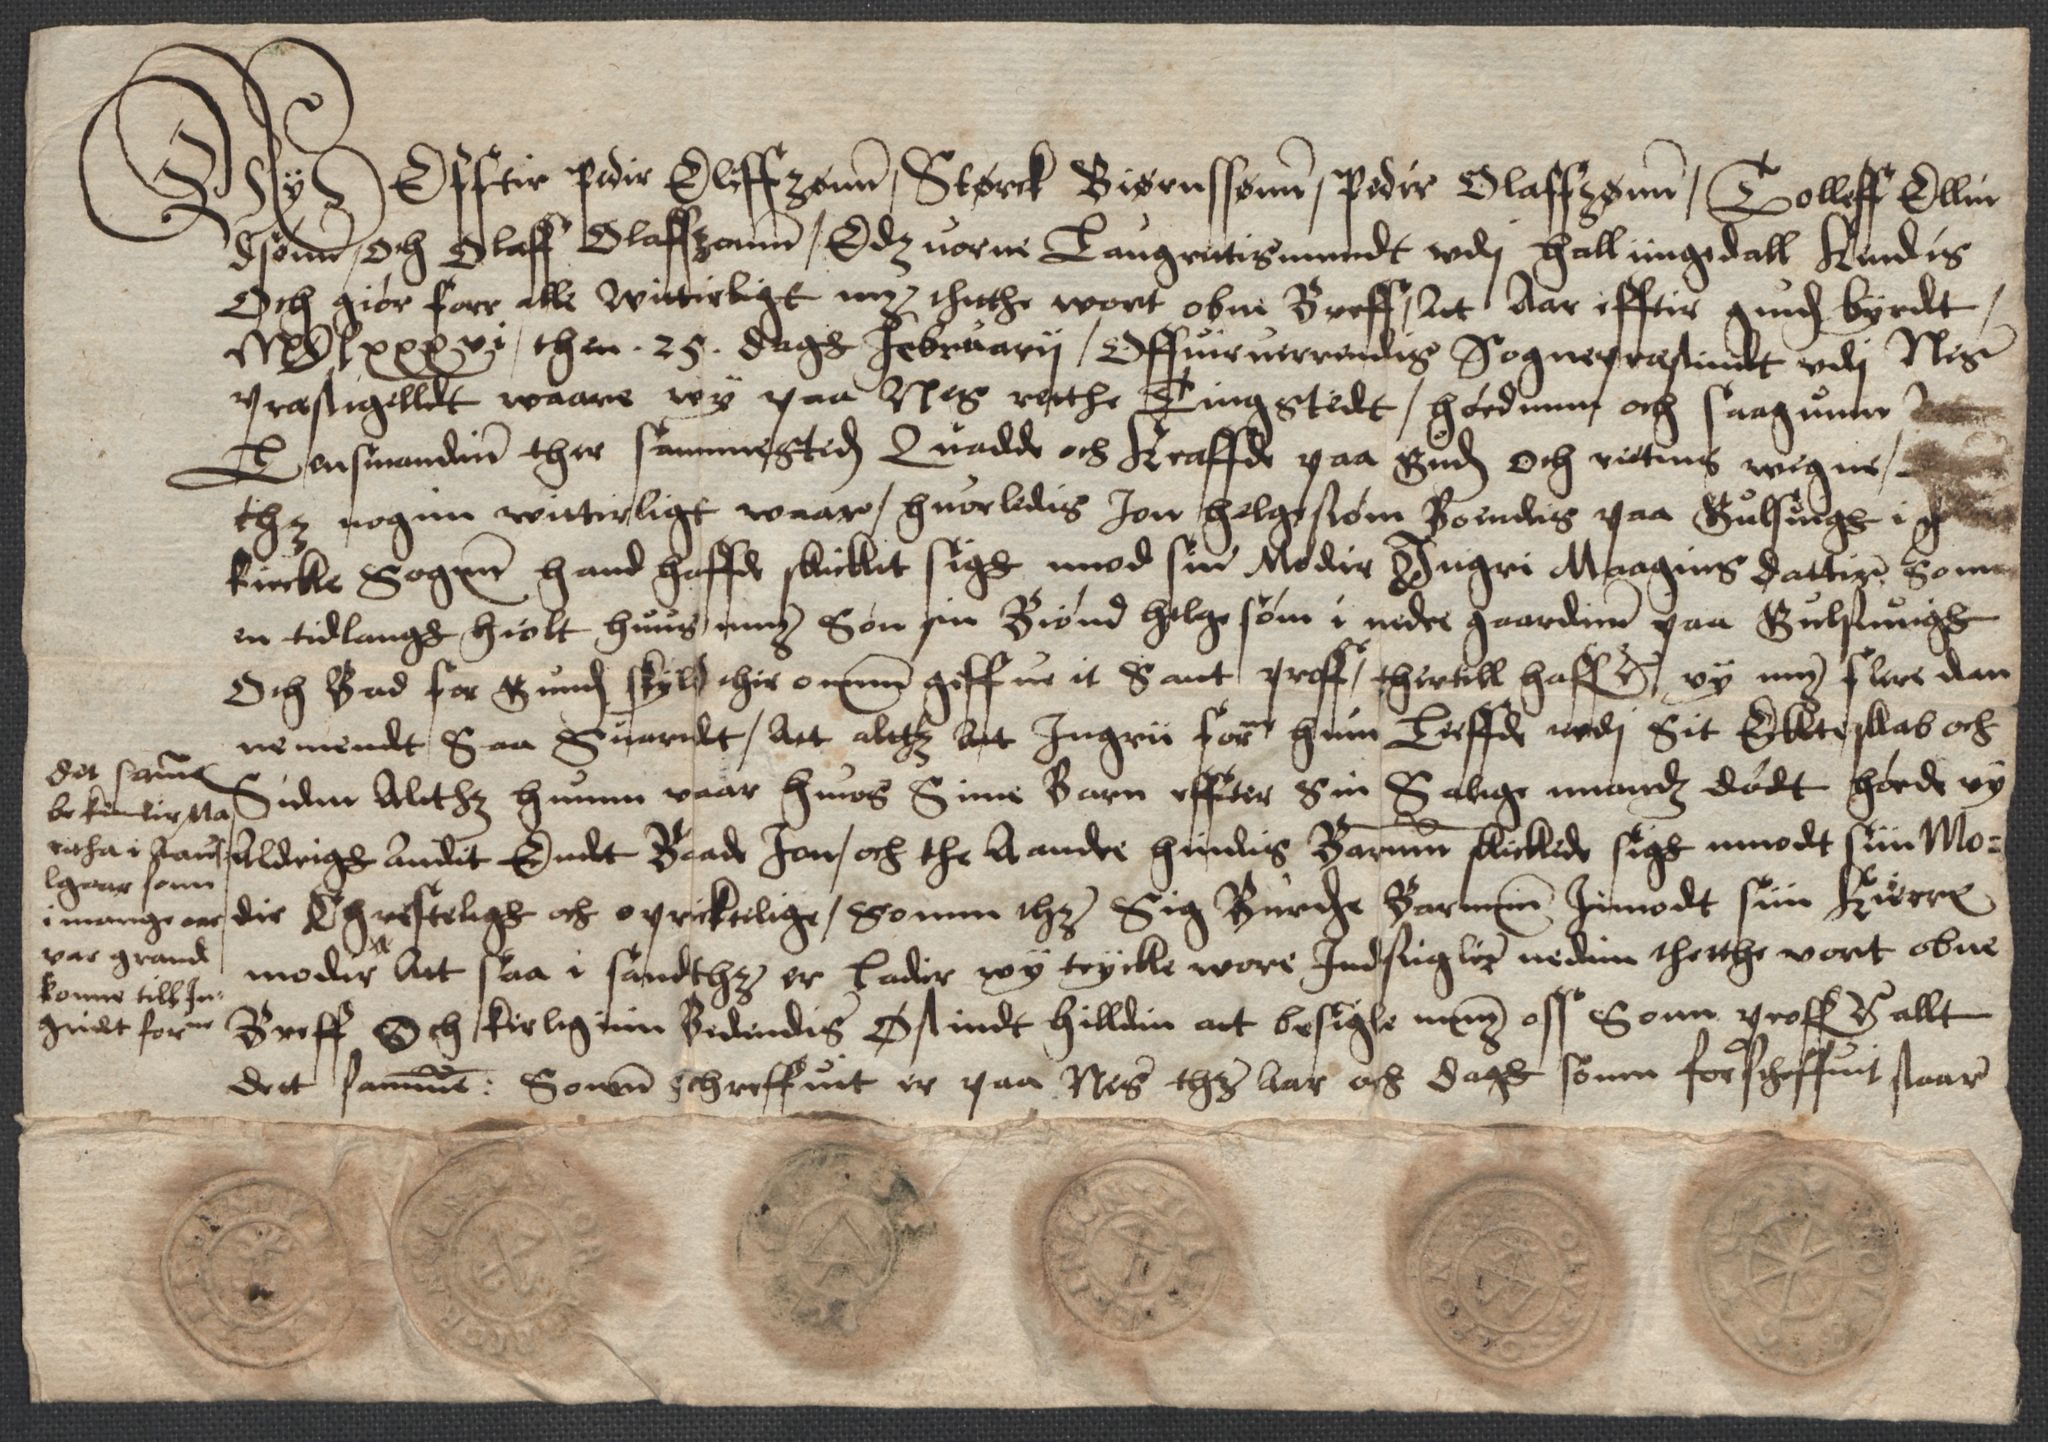 Wÿ Effstir Pedir Oleffzønn, Størck Biørnssønn, Peder Olaffzønn, Tolleff Ellin
dsønn, och Olaff Olaffzønn, Edzuorne Laugrettismendt vdj Hallingedall Kendis
Och giør forr alle witterligt mz thethe wort obne Breff, At Aar effter gudz byrdt,
MDlxxxvi, then .25. dagh Februarij, Offuiruerrendis Sognepræstindt vdj Nes
præstigelldt waare wÿ paa Nes rette Tingstedt, hørdum och saagum
Lensmandin ther sammestedz Quadde och kraffde paa Gudz och rettens wegne,
thz nogin witterligt waare, huorledis Jon Helgesøm Boendis paa Gulsuigh i
kirckle Sognn hand haffde skicket sigh mod sin Moder Ingri Maagins dattir som
en tidlangh hiolt huus mz Sønsin Biønd Helgesøm i nedre gaardinn paa Gulsuigh
Och Bad for Gudz skyld ther omm giffue it Sant proff, thertill haffr vÿ mz flere dan
nemendt Saa Suardt, Att alltz At Ingrii forne hun Leffde vdj Sit Ekteskab och
Siden Altthz hunn vaar huos Sine Barn effter sin Salige mandz dødt hørde vÿ
Aldrigh Andit Endt Baade Jon, och the Aandre hindis Barnn skickede sigh imodt siin Mo=
dir Christeligh och oprictelige, Somm thz Sig Burde Barnnin Jmodt siin Kierre
modir At saa i sandthz er Lader wÿ tryckle wore Indsigler nedin thette vort obne
Breff Och kierliginn Bedendis Østindt Hilldin at besigle mz oss Som proffr allt
det samme: Som schreffuit er paa Nes thz Aar och dagh som forscheffuit staar
det same
bekender Ma
retha i
lgaar som
i mange aar
var grand
konne till In=
gridt forne